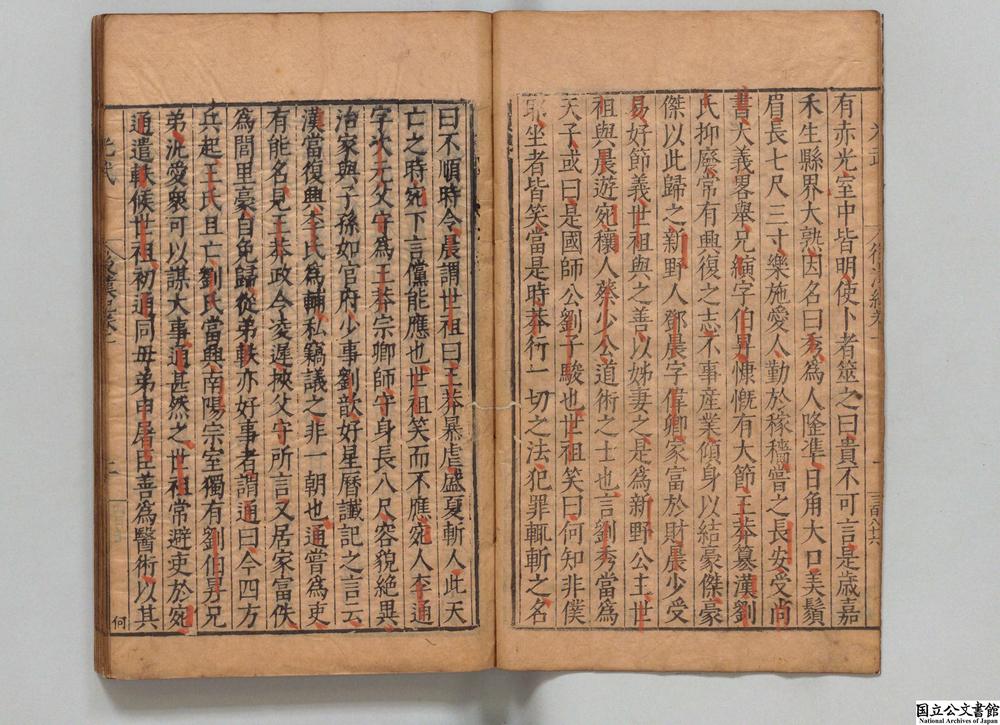 有赤光室中皆明使卜者筮之曰貴不可言是歳嘉
禾生縣界大熟因名曰秀為人隆準日角大口美鬚
眉長七尺三寸樂施愛人勤於稼穡嘗之長安受尚
書大義畧舉兄縯字伯昇慷慨有大節王莽篡漢劉
氏抑廢常有興復之志不事産業傾身以結豪傑豪
傑以此歸之新野人鄧晨字偉卿家富於財晨少受
易好節義世祖與之善以姊妻之是為新野公主世
祖與晨遊宛穰人蔡少公道術之士也言劉秀當為
天子或曰是國師公劉子駿也世祖笑曰何知非僕
耶坐者皆笑當是時莽行一切之法犯罪輒斬之名
曰不順時令晨謂世祖曰王莽暴虐盛夏斬人此天
亡之時宛下言儻能應也世祖笑而不應宛人李通
字次元父守為王莽宗卿師守身長八尺容貌絶異
治家與子孫如官府少事劉歆好星曆讖記之言云
漢當復興李氏為輔私竊議之非一朝也通嘗為吏
有能名見王莽政令凌遲挾父守所言又居家富佚
為閭里豪自免歸從弟軼亦好事者謂通曰今四方
兵起王氏且亡劉氏當興南陽宗室獨有劉伯昇兄
弟汎愛衆可以謀大事通甚然之世祖常避吏於宛
通遣軼候世祖初通同母弟申屠臣善為醫術以其
光武
何
国立公文書館
National Archives of Japan